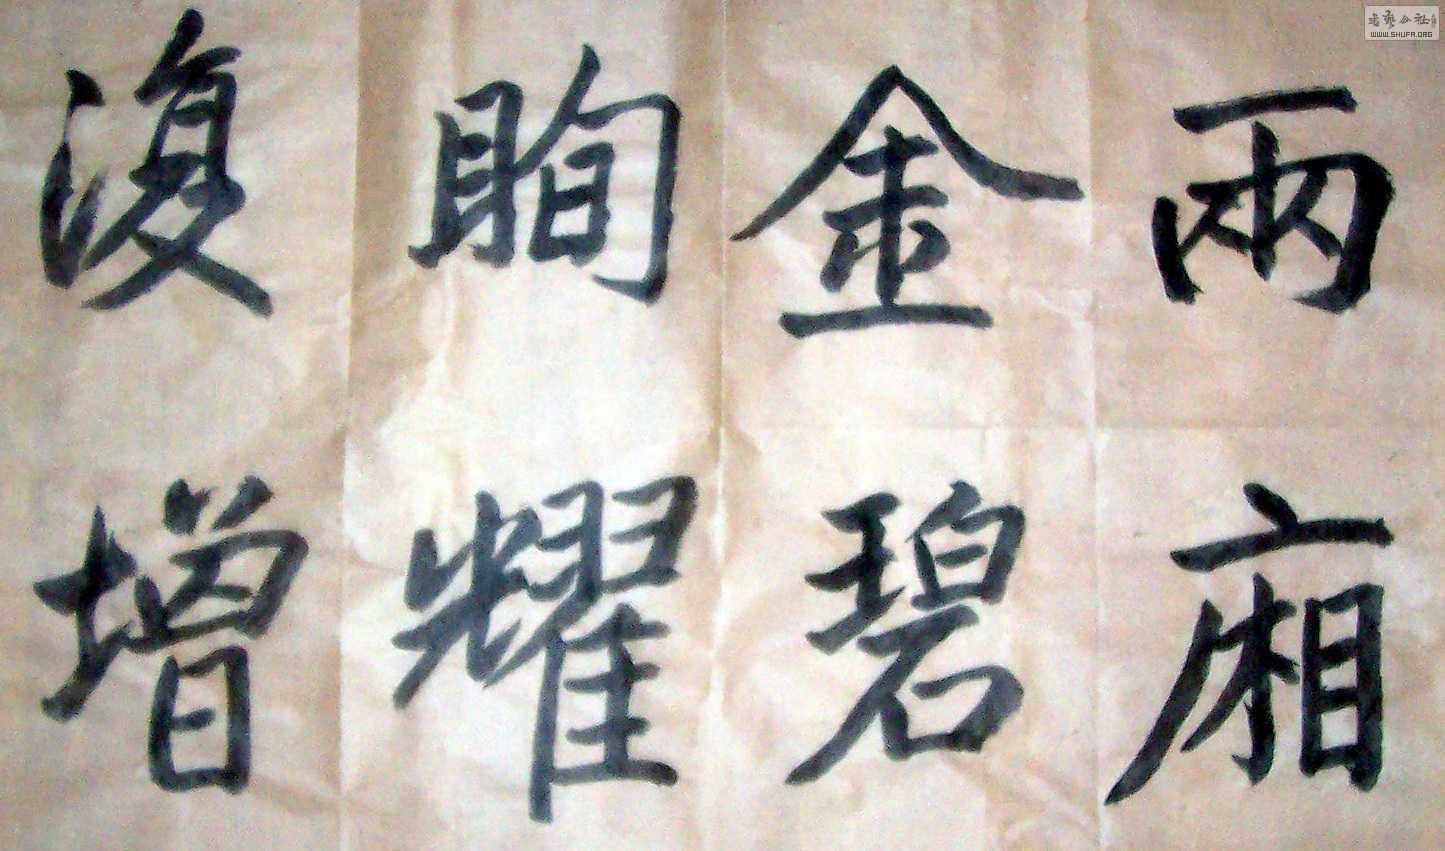 兩廂
金碧
眴耀
復增
書藝公社
WWW.SHUFA.ORG